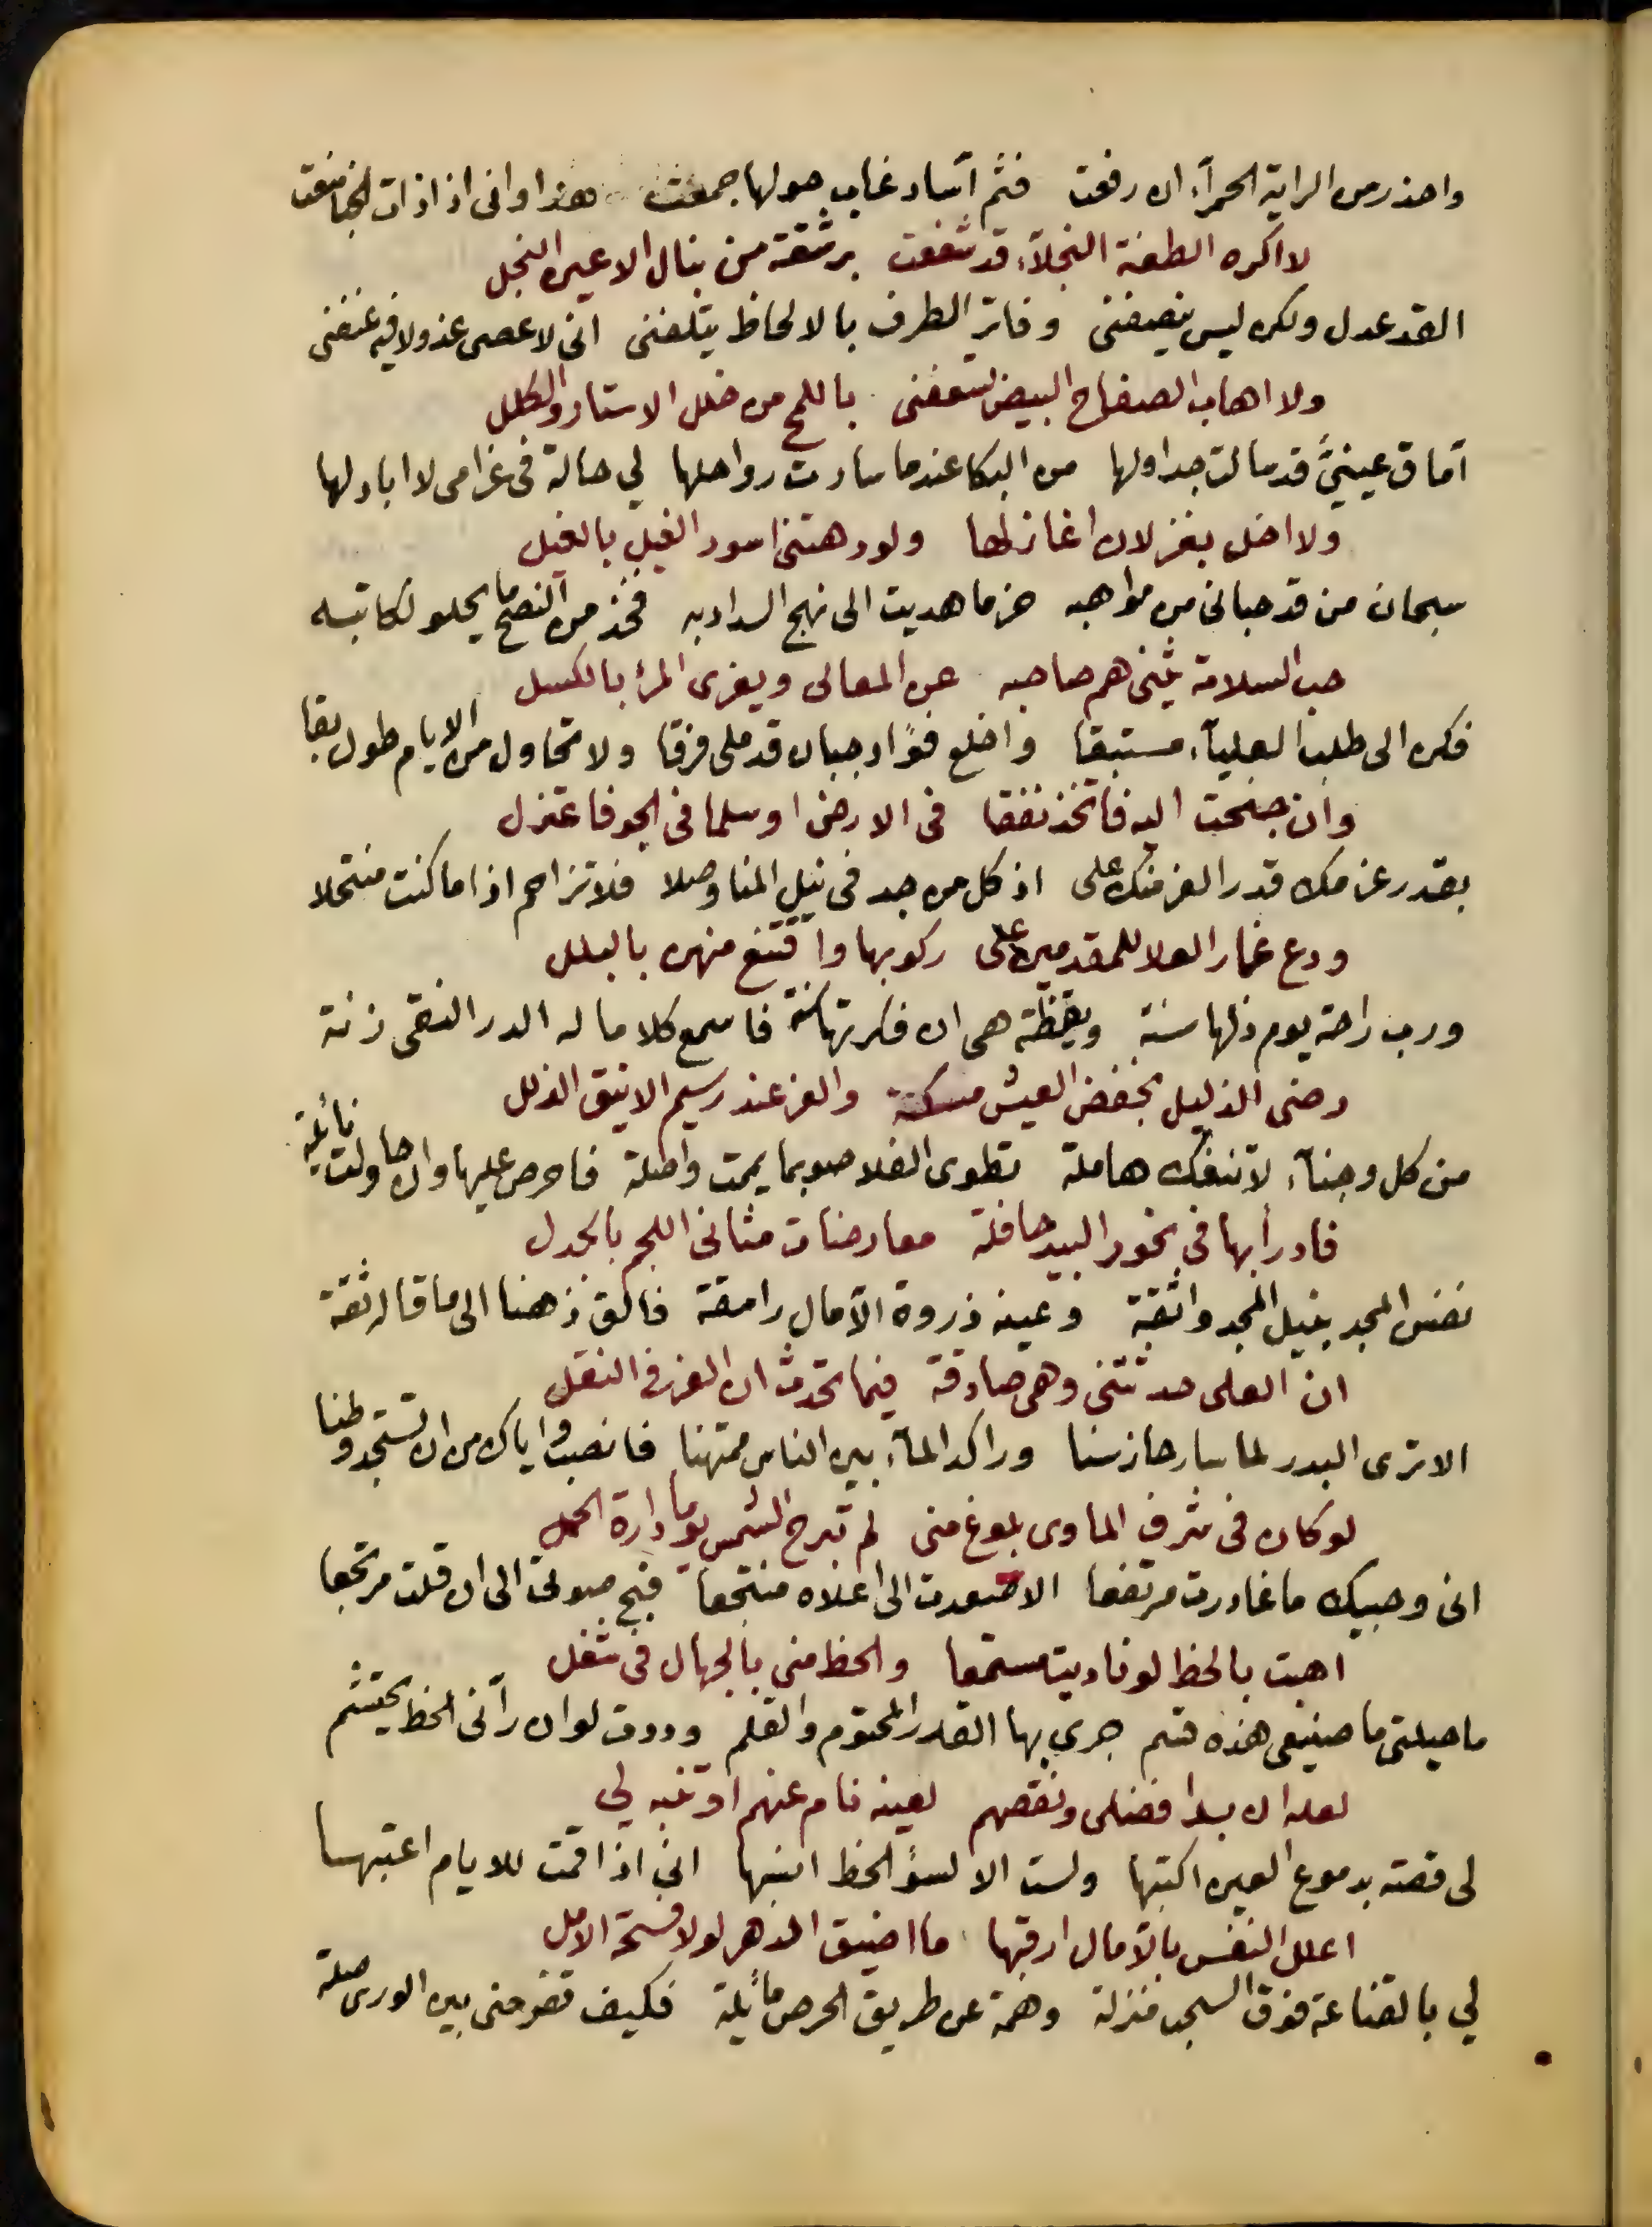 واحذر من الراية الحمرآء ان رفعت فثم آساد غاب حولها جمعت هذا وانى اذا ذات الخبا منعت
لا اكره الطعنة النجلآء قد شفعت برشقة من نبال الاعين النجل
القد عدل ولكن ليس ينصفنى وفاتر الطرف بالالحاظ يتلفنى انى لاعصى عذولا فيه عنفنى
ولا اهاب الصفاح البيض تسعفنى باللمح من خلل الاستار والكلل
آماق عينيَّ قد سالت جداولها من البكا عندما سارت رواحلها لي حالة فى غرامى لا ابادلها
ولا اخل بغزلان اغازلها ولو دهتنى اسود الغيل بالغيل
سبحان من قد حبانى من مواهبه حزما هديت الى نهج السداد به فخذ من النصح ما يحلو لكاتبه
حب السلامة يثنى هم صاحبه عن المعالى ويغرى المرء بالكسل
فكن الى طلب العليآء مستبقا واخلع فؤاد جبان قد ملى فرقا ولا تحاول من الايام طول بقا
وان جنحت اليه فاتخذ نفقا فى الارض او سلما فى الجو فاعتزل
بقدر عزمك قدر العز منك على اذ كل من جد فى نيل المنا وصلا فلا تزاحم اذا ما كنت منتحلا
ودع غمار العلا للمقدمين على ركوبها واقتنع منهن بالبلل
ورب راحة يوم ذلها سنة ويقظة هى ان فكرتها سنة فاسمع كلاما له الدر النقى زنة
رضى الذليل بخفض العيش مسكنة والعز عند رسيم الاينق الذلل
من كل وجنآء لا تنفك هاملة تطوى الفلا صوبما يممت واصلة فاحرص عليها وان حاولت نائلة
فادرأ بها فى نحور البيد حافلة معارضات مثانى اللجم بالجدل
نفس المجد بنيل المجد واثقة وعينه ذروة الآمال رامقة فالق ذهنا الى ما قاله ثقة
ان العلى حدثتنى وهى صادقة فيما تحدث ان العز فى النقل
الا ترى البدر لما سار حاز سنا وراكد المآء بين الناس ممتهنا فانصب واياك من ان تستجد وطنا
لو كان فى شرف الماوى بلوغ منى لم تبرح الشمس يوما دارة الحمل
انى وحبيك ما غادرت مرتفعا الا صعدت الى اعلاه منتجعا فبح صوتى الى ان قلت مرتجعا
اهبت بالحظ لو ناديت مستمعا والحظ منى بالجهال فى شغل
ما حيلتى ما صنيعى هذه قسم جرى بها القدر المحتوم والقلم ووددت لو ان رآنى الحظ يحتشم
لعله ان بدا فضلى ونقصهم لعينه نام عنهم او تنبه لي
لى قصة بدموع العين اكتبها ولست الا لسوء الحظ انسبها انى اذا قمت للايام اعتبها
اعلل النفس بالآمال ارقبها ما اضيق الدهر لولا فسحة الامل
لي بالقناعة فوق السحب منزلة وهمة عن طريق الحرص مائلة فكيف تفرحنى بين الورى صلة